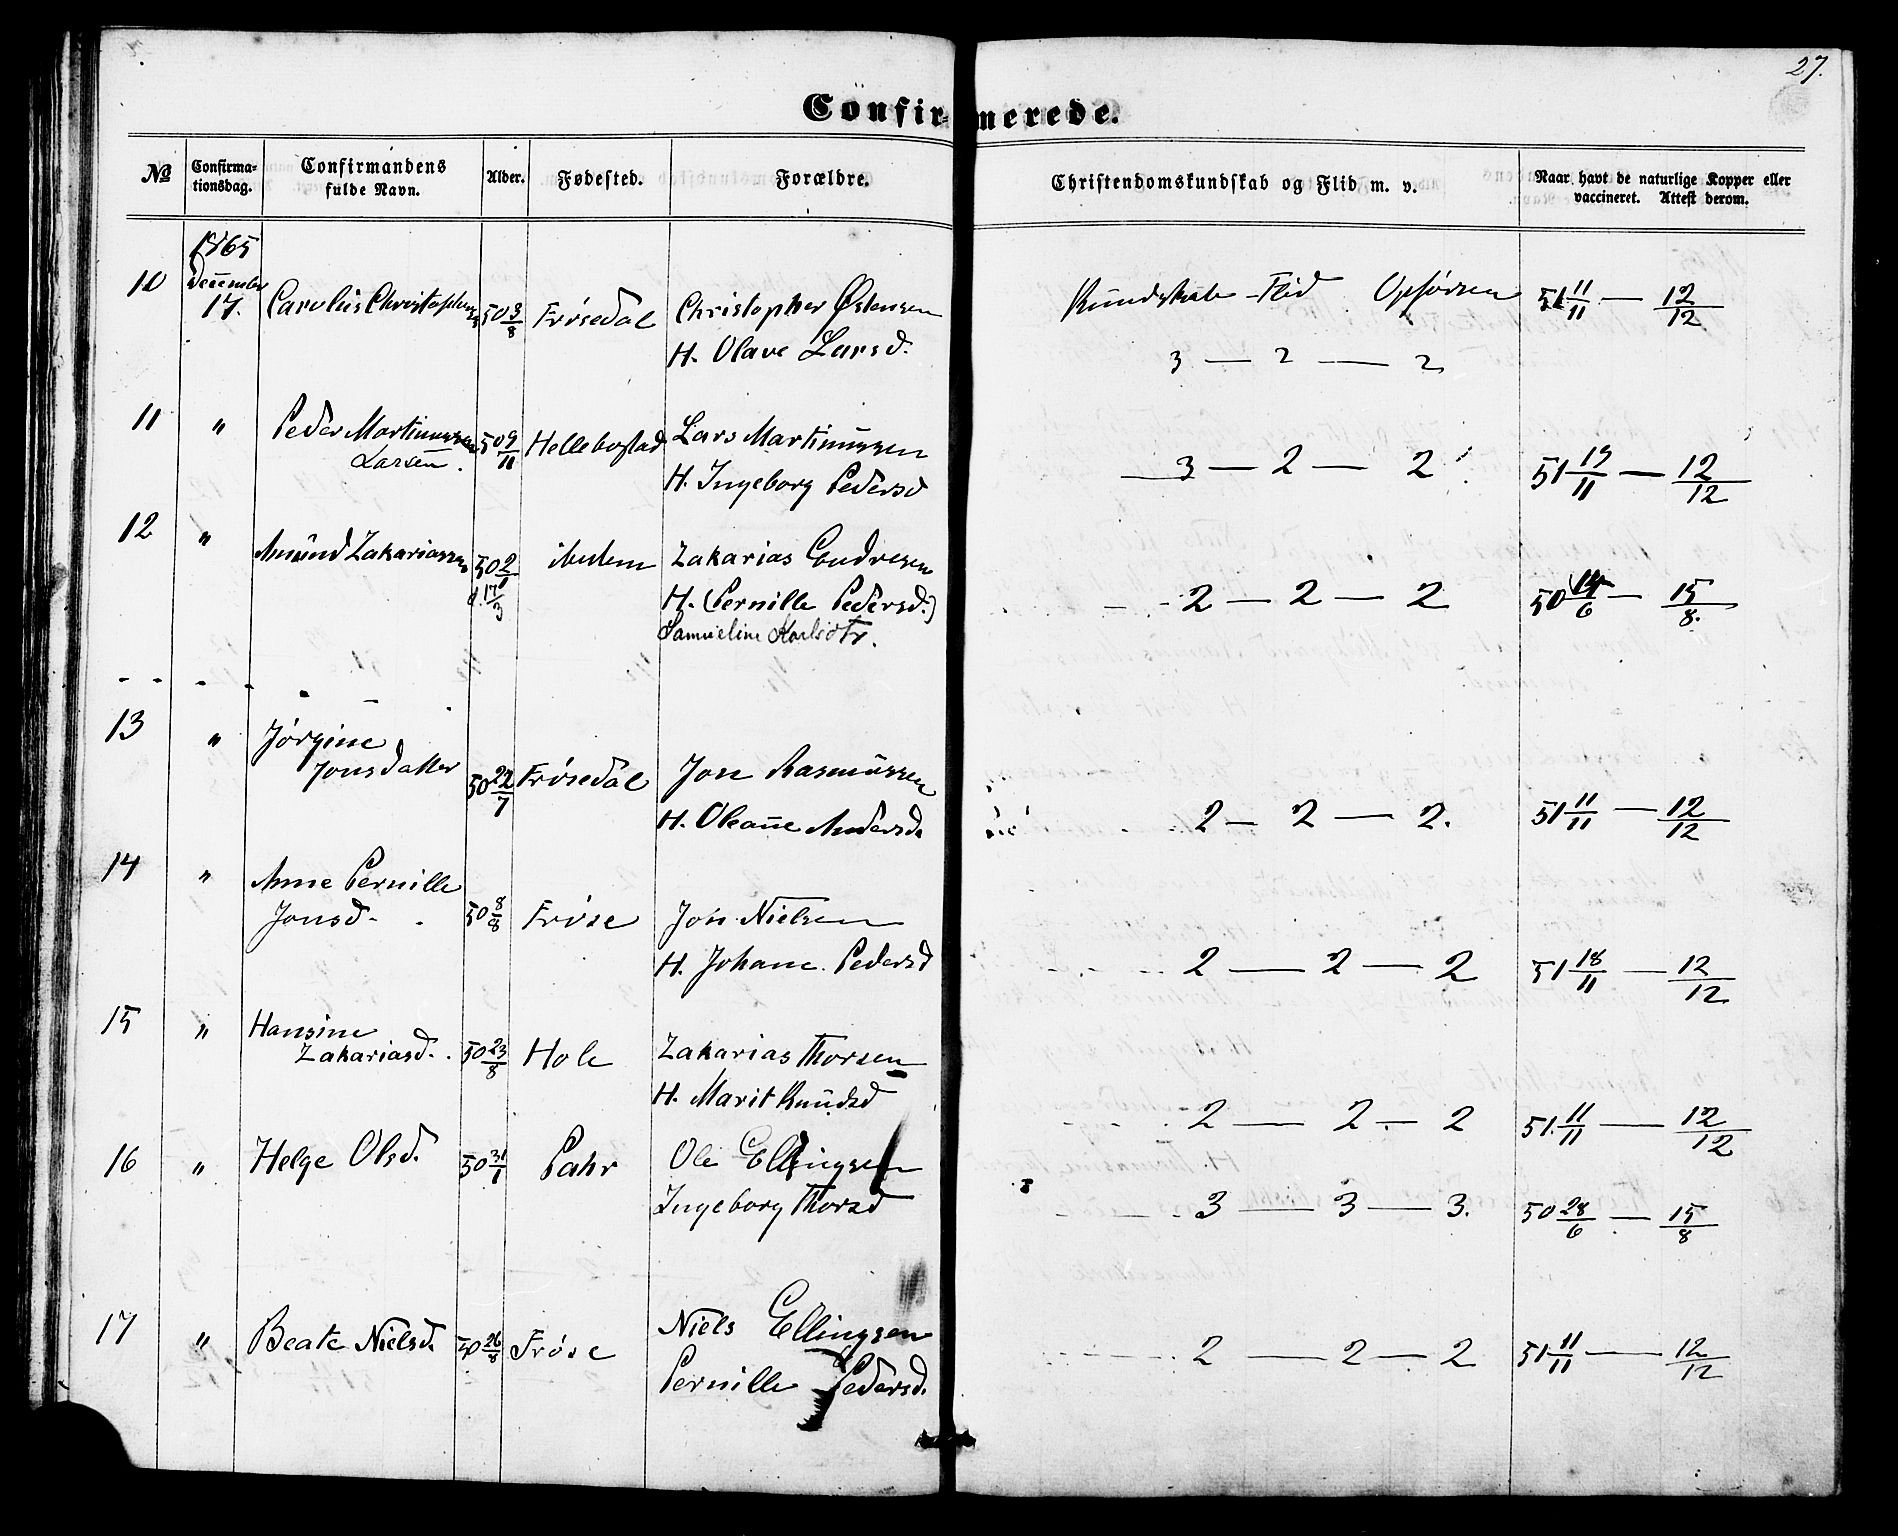 27.
Confirmerede.
No Confirmationsdag. Confirmandens fulde Navn. Alder. Fødested. Forældre. Christendomskundskab og Flid m. v. Naar havt de naturlige Kopper eller vaccineret. Attest derom.
1865
December
10 17. Carolus Christophersen 50 3/8 Frøsedal Christopher Østensen Kundskab – Flid Opførsen 51 11/11 — 12/12
H. Olave Larsd. 3 — 2 — 2
11 " Peder Martinussen 50 9/11 Hellebostad Lars Martinussen 3 — 2 — 2 51 19/11 — 12/12
Larsen. H. Ingeborg Pedersd
12 " Amund Zakariassen 50 2/1 ibidem Zakarias Endresen 2 — 2 — 2 50 14/6 — 15/8.
d. 17/3 H. (Pernille Pedersd.)
Samueline Karlsdtr.
13 " Jørgine
Jonsdatter 50 22/7 Frøsedal Jon Rasmussen 2 — 2 — 2. 51 11/11 — 12/12
H. Oleane Andersd.
14 " Anne Pernille
Jonsd. 50 8/8 Frøse Jon Nielsen 2 — 2 — 2 51 18/11 — 12/12
H. Johane Pedersd
15 " Hansine
Zakariasd. 50 23/8 Hole Zakarias Thorsen 2 — 2 — 2 51. 11/11 — 12/12
H. Marit Knudsd
16 " Helge Olsd. 50 31/1 Pahr Ole Ellingsen 3 — 3 — 3. 50 28/6 — 15/8
Ingeborg Thorsd
17 " Beate Nielsd. 50 26/8 Frøse Niels Ellingsen 2 — 2 — 2 51 11/11 — 12/12
Pernille Pedersd.